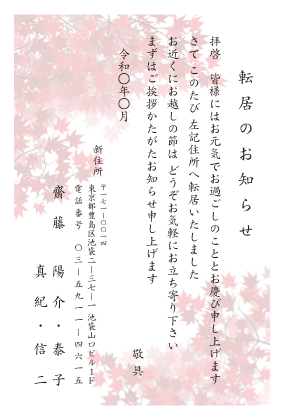 転居のお知らせ
拝啓　皆様にはお元気でお過ごしのこととお慶び申し上げます
さて このたび 左記住所へ転居いたしました
お近くにお越しの節は どうぞお気軽にお立ち寄り下さい
まずはご挨拶かたがたお知らせ申し上げます
敬具
令和〇年〇月
新住所
〒一七一―〇〇一四
東京都豊島区池袋二―三七―一 池袋山口ビル１Ｆ
電話番号　〇三―五九一一―四六三一
齋藤　陽介・泰子
真紀・信二